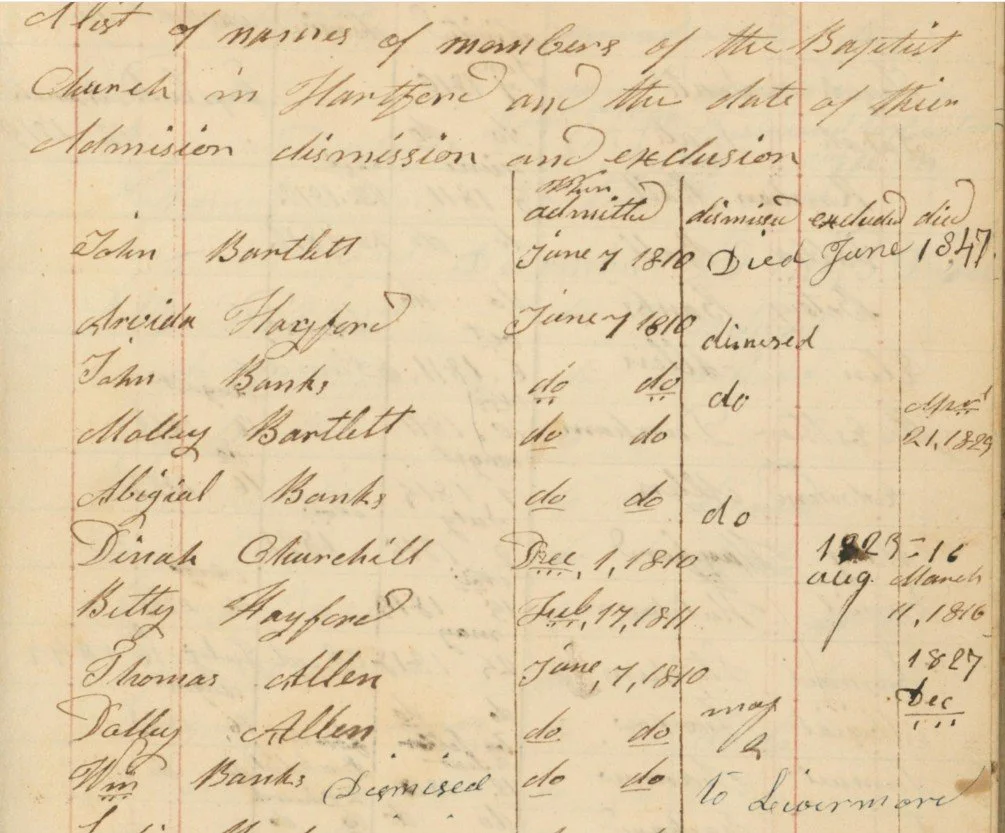 A list of names of members of the Baptist
Church in Hartford and the date of their
Admision dismission and exclusion
When
admitted dismised excluded died
John Bartlett June 7 1810 Died June 1847
Arvida Hayford June 7 1810 dismised
John Banks do do do
Molley Bartlett do do 21, 1829
Abigial Banks do do do
Dinah Churchill Dec, 1, 1810 1823-16
aug. March
Betty Hayford Feb, 17, 1811 11, 1816
Thomas Allen June, 7, 1810 1827
Dolley Allen do do may Dec
Wm Banks Dismised do do to Livermore